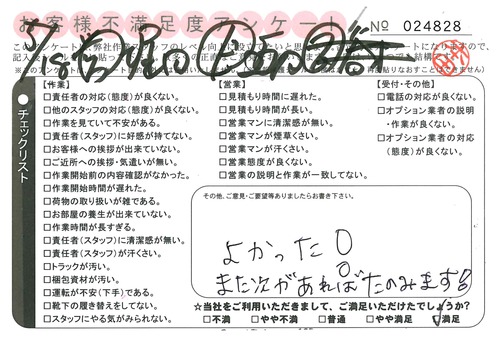 お客様不満足度アンケート
№ 024828
チェックリスト
【作業】
□責任者の対応(態度)が良くない。
□他のスタッフの対応(態度)が良くない。
□作業を見ていて不安がある。
□責任者(スタッフ)に好感が持てない。
□お客様への挨拶が出来ていない。
□ご近所への挨拶・気遣いが無い。
□作業開始前の内容確認がなかった。
□作業開始時間が遅れた。
□荷物の取り扱いが雑である。
□お部屋の養生が出来ていない。
□作業時間が長すぎる。
□責任者(スタッフ)に清潔感が無い。
□責任者(スタッフ)が汗さい。
□トラックが汚い。
□梱包資材が汚い。
□運転が不安(下手)である。
□靴下の履き替えをしてない。
□スタッフにやる気がみられない。
【営業】
□見積もり時間に遅れた。
□見積もり時間が長い。
□営業マンに清潔感が無い。
□営業マンが煙草くさい。
□営業マンが汗さい。
□営業態度が良くない。
□営業の説明と作業が一致してない。
【受付・その他】
□電話の対応が良くない。
□オプション業者の説明
・作業が良くない。
□オプション業者の対応
(態度)が良くない。
その他、ご意見・ご要望等ありましたらお書き下さい。
よかった!
また次があればたのみます!
☆当社をご利用いただきまして、ご満足いただけたでしょうか?
□不満 □やや不満 □普通 □やや満足 □満足